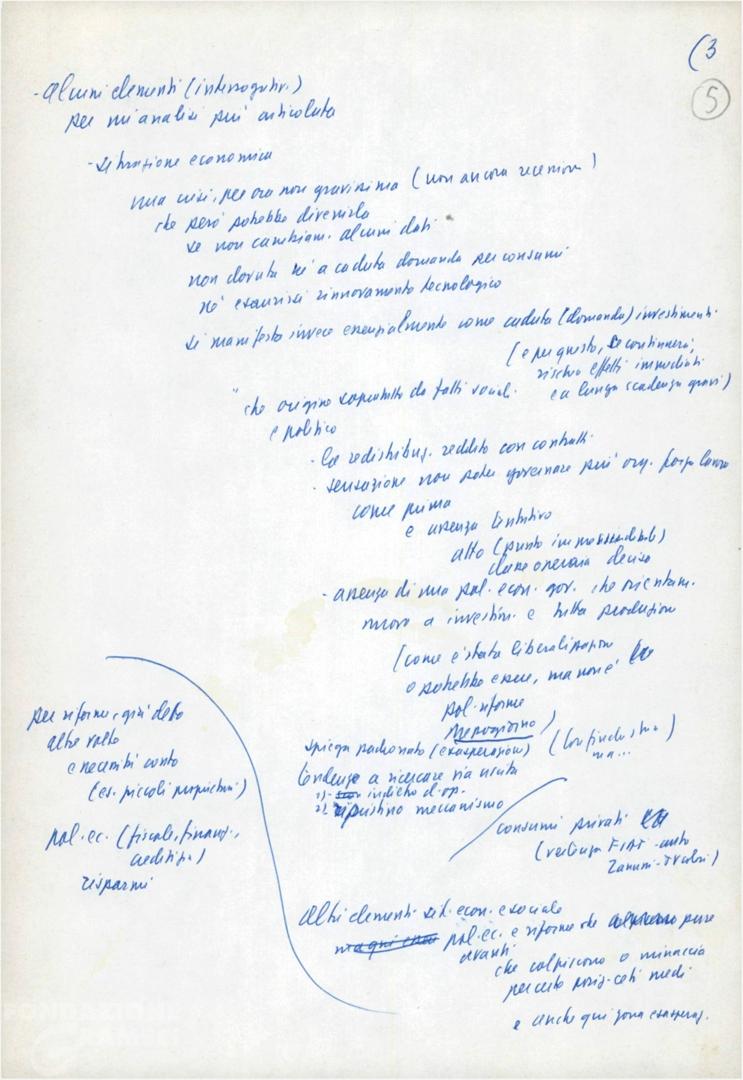 (3
5
- alcuni elementi (interrogativ.)
per un'analisi più articolata
- situazione economica
una crisi, per ora non gravissima (non ancora recessione)
che però potrebbe divenirla
se non cambiam. alcuni dati
non dovuta né a caduta domanda per consumi
né esaurirsi rinnovamento tecnologico
si manifesta invece essenzialmente come caduta (domanda) investimenti
(e per questo, se continuerà,
rischia effetti immediati
e a lunga scadenza gravi)
che origine soprattutto da fatti sociali
e politico
- la redistribuz. reddito con contratti
- sensazione non poter governare più org. forza lavoro
come prima
e assenza tentativo
alto (punto
classe operaia decisa
- assenza di una pol. econ. gov. che orientam.
nuovo a investim. e tutta produzion
(come è stata liberalizzazion
o potrebbe essere, ma non è
pol. riforme
Mezzogiorno)
spiega padronato (esasperazion) (Confindustria
ma...)
tendenze a ricercare via uscita
1) indietro d. op.
2) ripristino meccanismo
consumi privati
(vertenza FIAT - auto
Zanussi -
per riforme, già detto
altre volte
e necessità conto
(es. piccoli proprietari)
pol. ec. (fiscale, finanz.,
creditizia)
risparmi
altri elementi sit. econ. e sociale
pol. ec. e riforme che pure
avanti
che colpiscono o minaccia
per certo posiz. ceti medi
e anche qui zona esasperaz.
FONDAZIONE